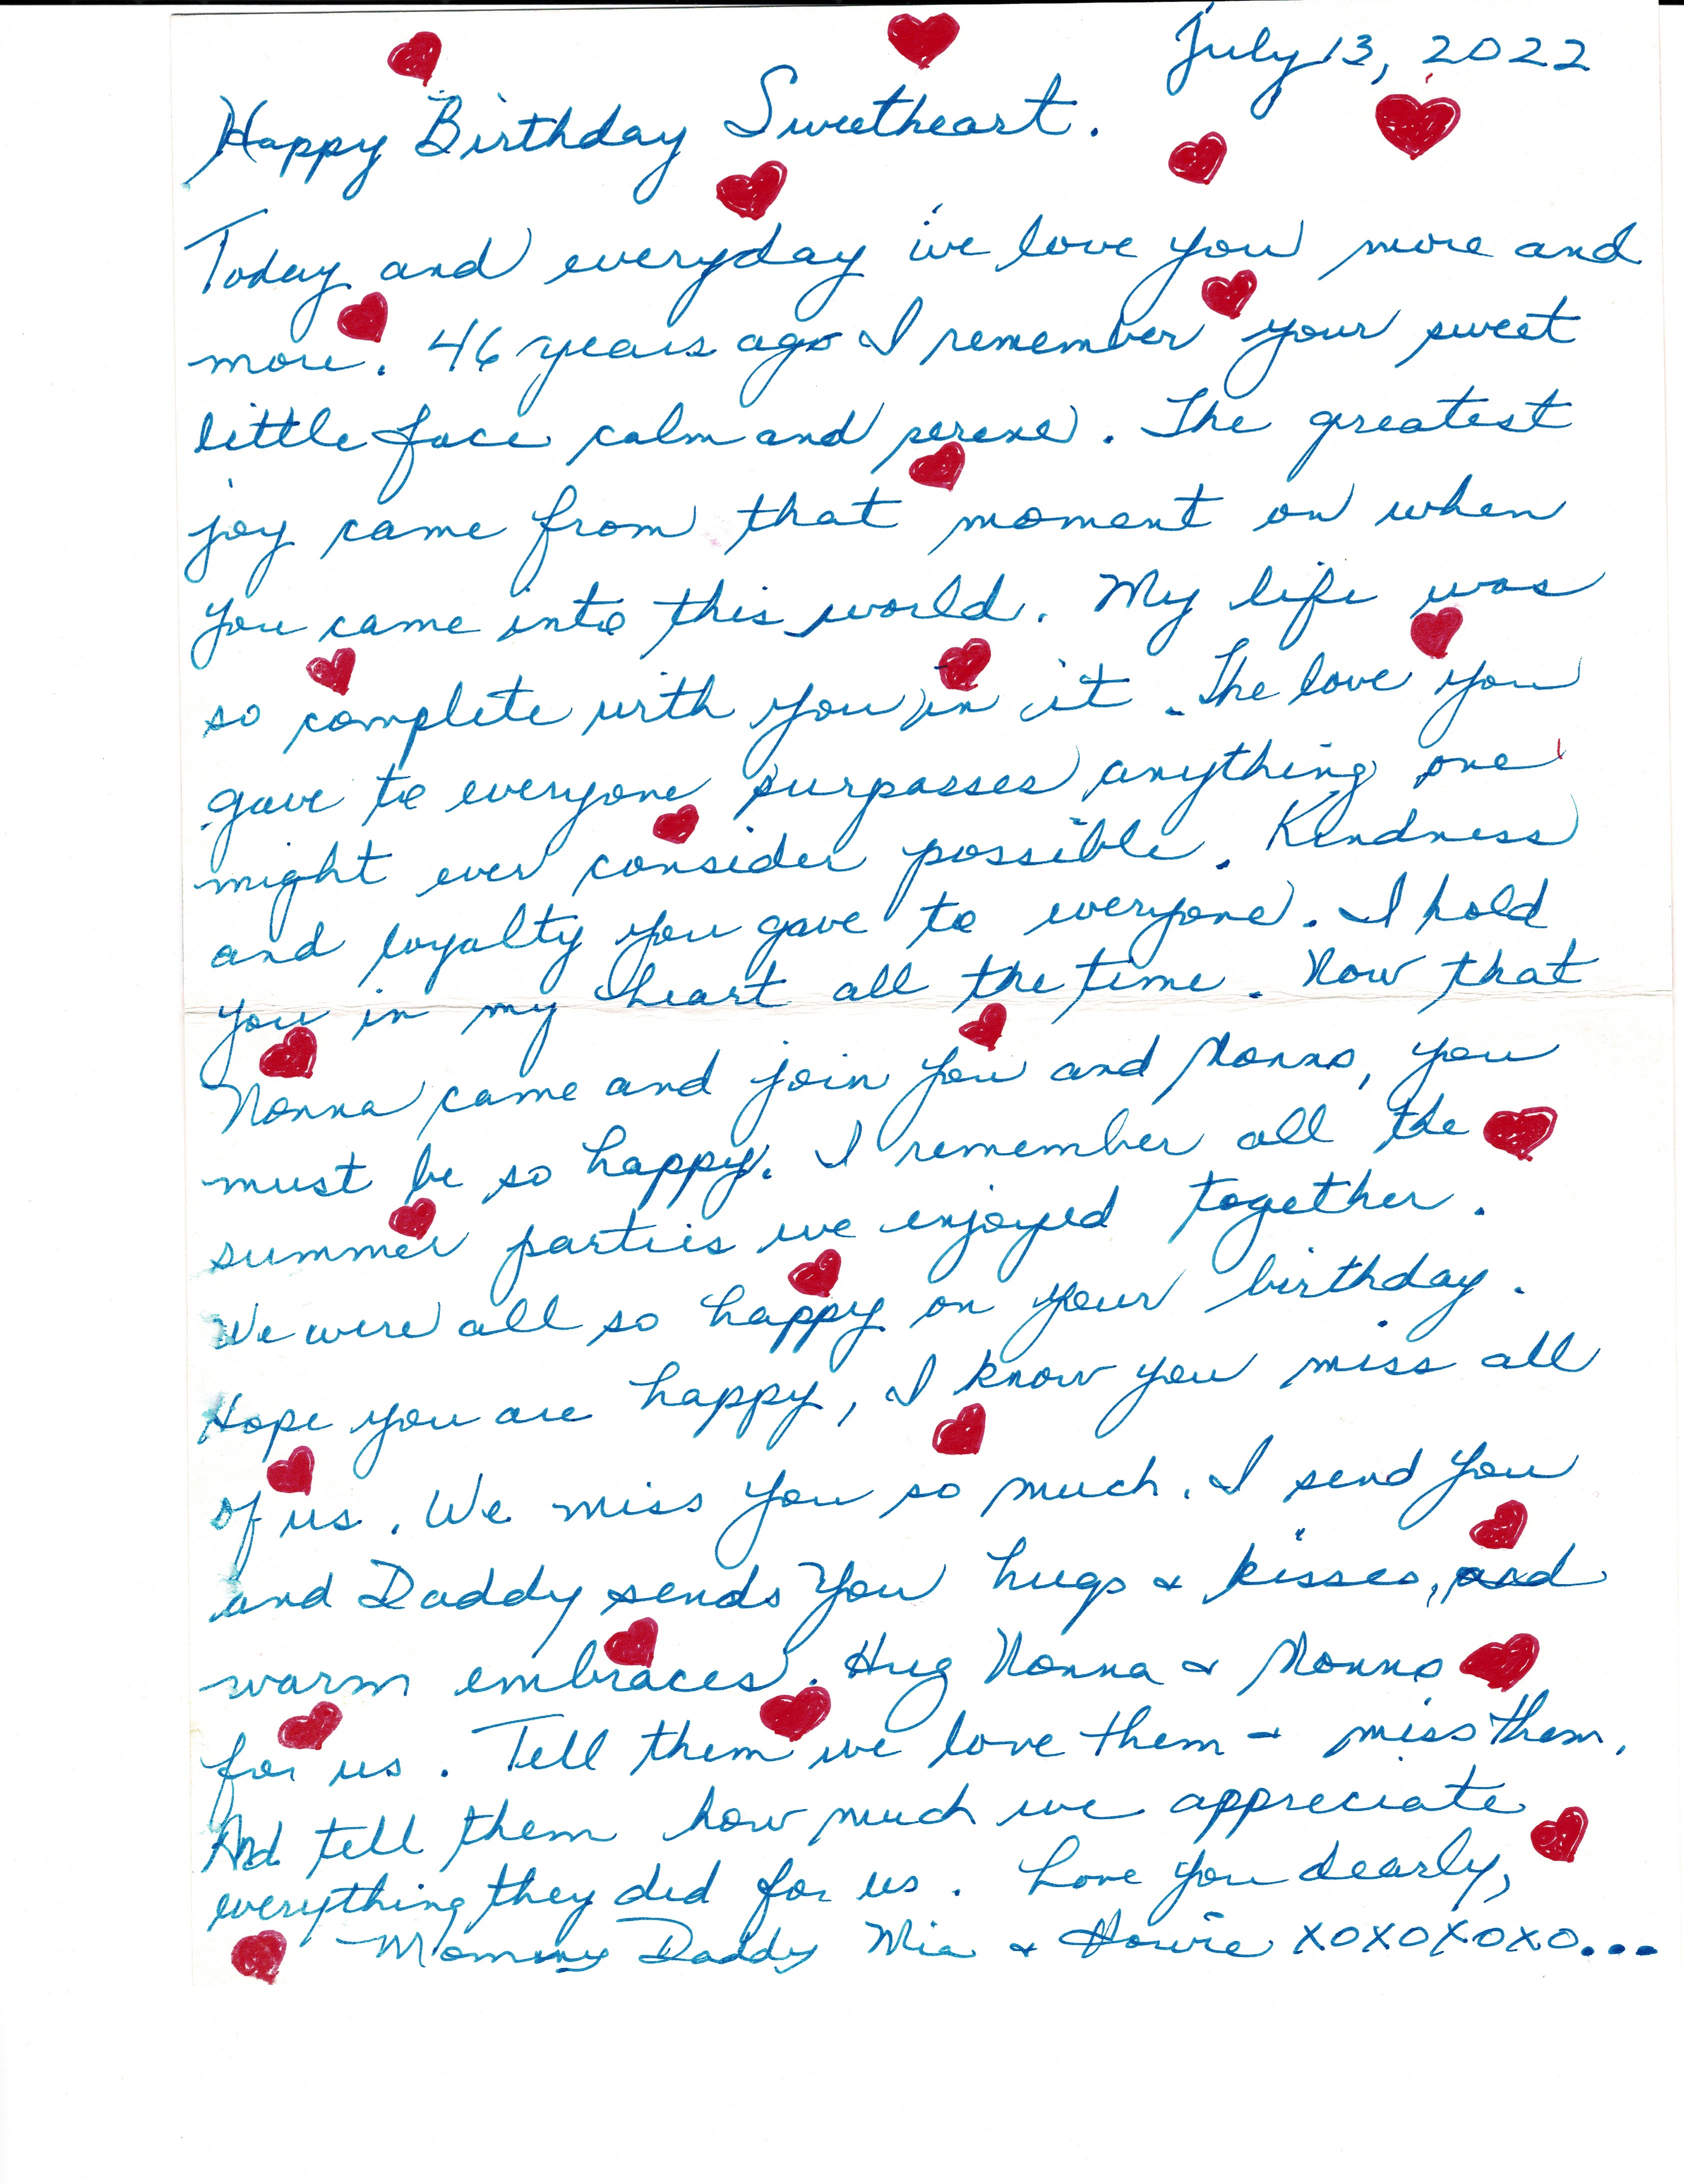 July 13, 2022
Happy Birthday Sweetheart.
Today and everyday we love you more and
more. 46 years ago I remember your sweet
little face calm and serene. The greatest
joy came from that moment on when
you came into this world. My life was
so complete with you in it. The love you
gave to everyone surpasses anything one
might ever consider possible. Kindness
and loyalty you gave to everyone. I hold
you in my heart all the time. Now that
Nonna came and join you and Nonno, you
must be so happy. I remember all the
summer parties we enjoyed together.
We were all so happy on your birthday.
Hope you are happy, I know you miss all
of us. We miss you so much. I send you
and Daddy sends you hugs & kisses, and
warm embraces. Hug Nonna & Nonno
for us. Tell them we love them & miss them.
And tell them how much we appreciate
everything they did for us. Love you dearly,
Mommy Daddy Mia & Howie XOXOXOXO...